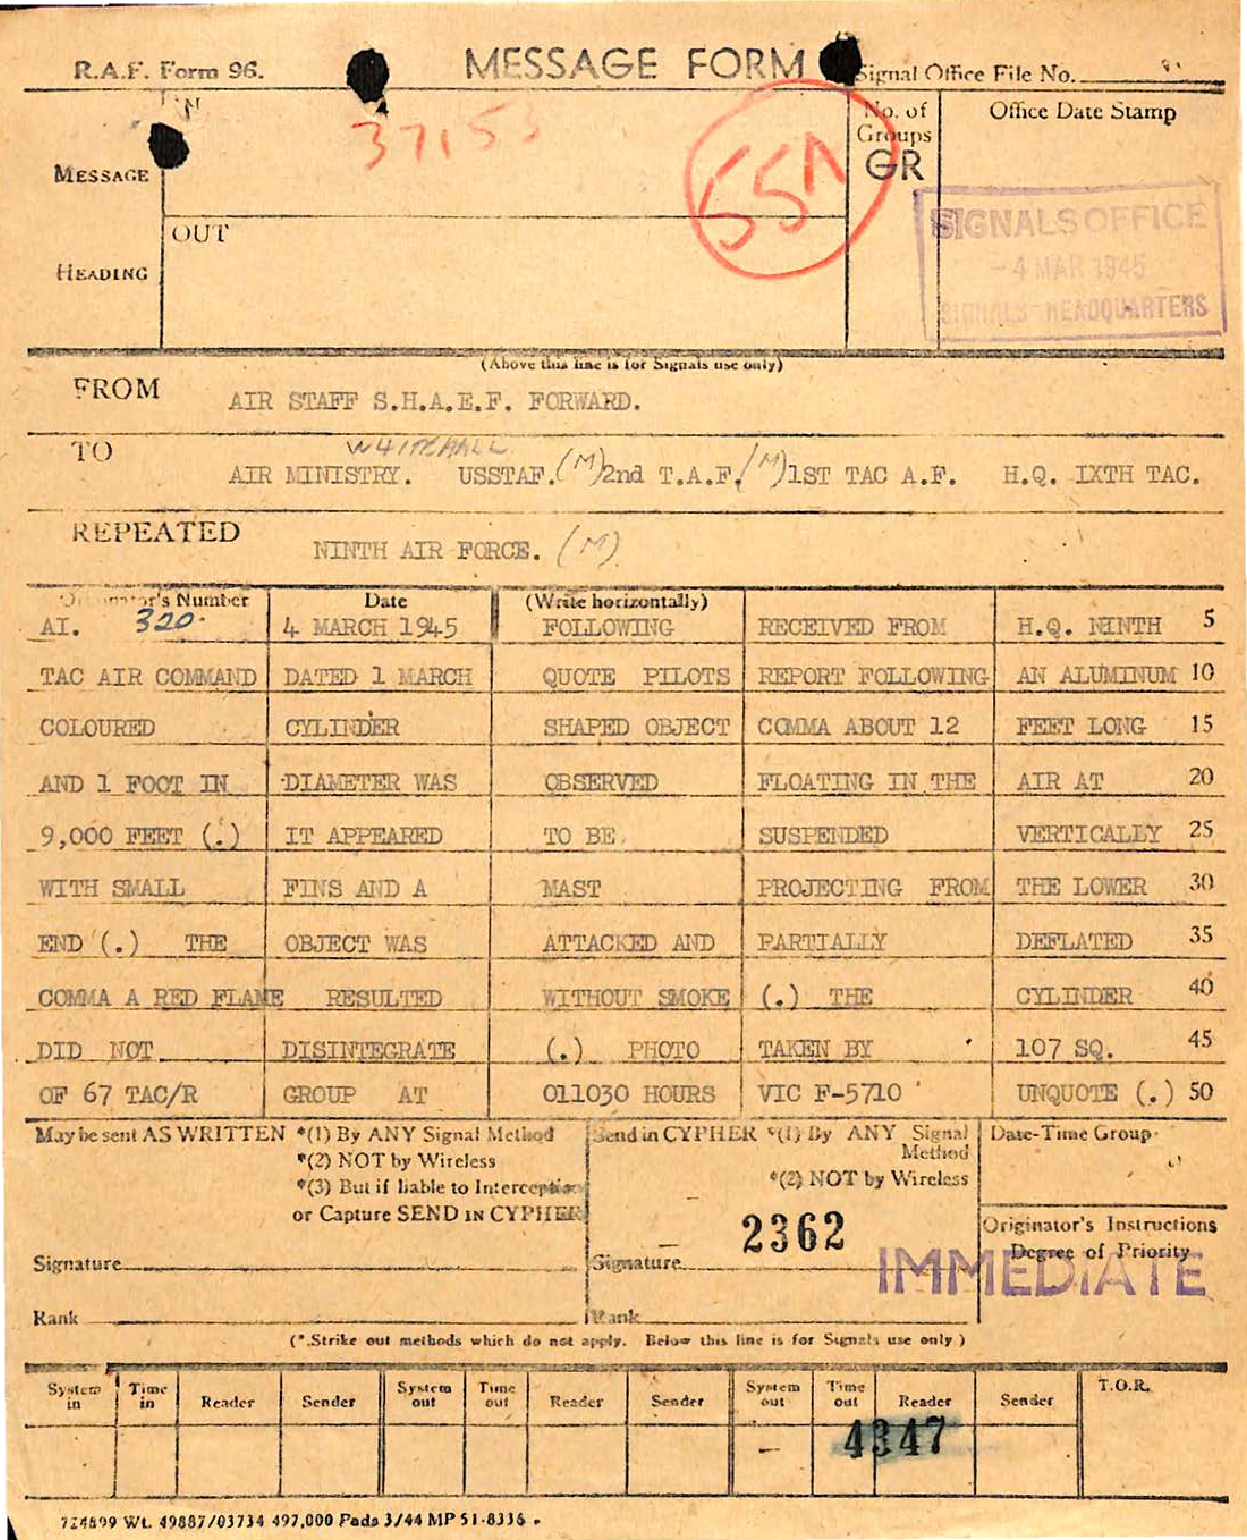 R.A.F. Form 96.
MESSAGE FORM
Signal Office File No.
37153
55A
No. of Groups
GR
Office Date Stamp
MESSAGE
HEADING
IN
OUT
SIGNALS OFFICE
-4 MAR 1945
SIGNALS HEADQUARTERS
(Above this line is for Signals use only)
FROM AIR STAFF S.H.A.E.F. FORWARD.
WHITEHALL
TO AIR MINISTRY. USSTAF. (M) 2nd T.A.F. (M) 1ST TAC A.F. H.Q. IXTH TAC.
REPEATED NINTH AIR FORCE. (M)
Originator's Number Date (Write horizontally)
AI. 320. 4 MARCH 1945 FOLLOWING RECEIVED FROM H.Q. NINTH 5
TAC AIR COMMAND DATED 1 MARCH QUOTE PILOTS REPORT FOLLOWING AN ALUMINUM 10
COLOURED CYLINDER SHAPED OBJECT COMMA ABOUT 12 FEET LONG 15
AND 1 FOOT IN DIAMETER WAS OBSERVED FLOATING IN THE AIR AT 20
9,000 FEET (.) IT APPEARED TO BE SUSPENDED VERTICALLY 25
WITH SMALL FINS AND A MAST PROJECTING FROM THE LOWER 30
END (.) THE OBJECT WAS ATTACKED AND PARTIALLY DEFLATED 35
COMMA A RED FLAME RESULTED WITHOUT SMOKE (.) THE CYLINDER 40
DID NOT DISINTEGRATE (.) PHOTO TAKEN BY 107 SQ. 45
OF 67 TAC/R GROUP AT 011030 HOURS VIC F-5710 UNQUOTE (.) 50
May be sent AS WRITTEN *(1) By ANY Signal Method
*(2) NOT by Wireless
*(3) But if liable to Interception
or Capture SEND IN CYPHER
Signature
Rank
Send in CYPHER *(1) By ANY Signal
Method
*(2) NOT by Wireless
2362
Signature
Rank
Date-Time Group
Originator's Instructions
Degree of Priority
IMMEDIATE
(*Strike out methods which do not apply. Below this line is for Signals use only)
System in Time in Reader Sender System out Time out Reader Sender System out Time out Reader Sender T.O.R.
4347
724699 Wt. 49887/03734 497,000 Pads 3/44 MP 51-8336